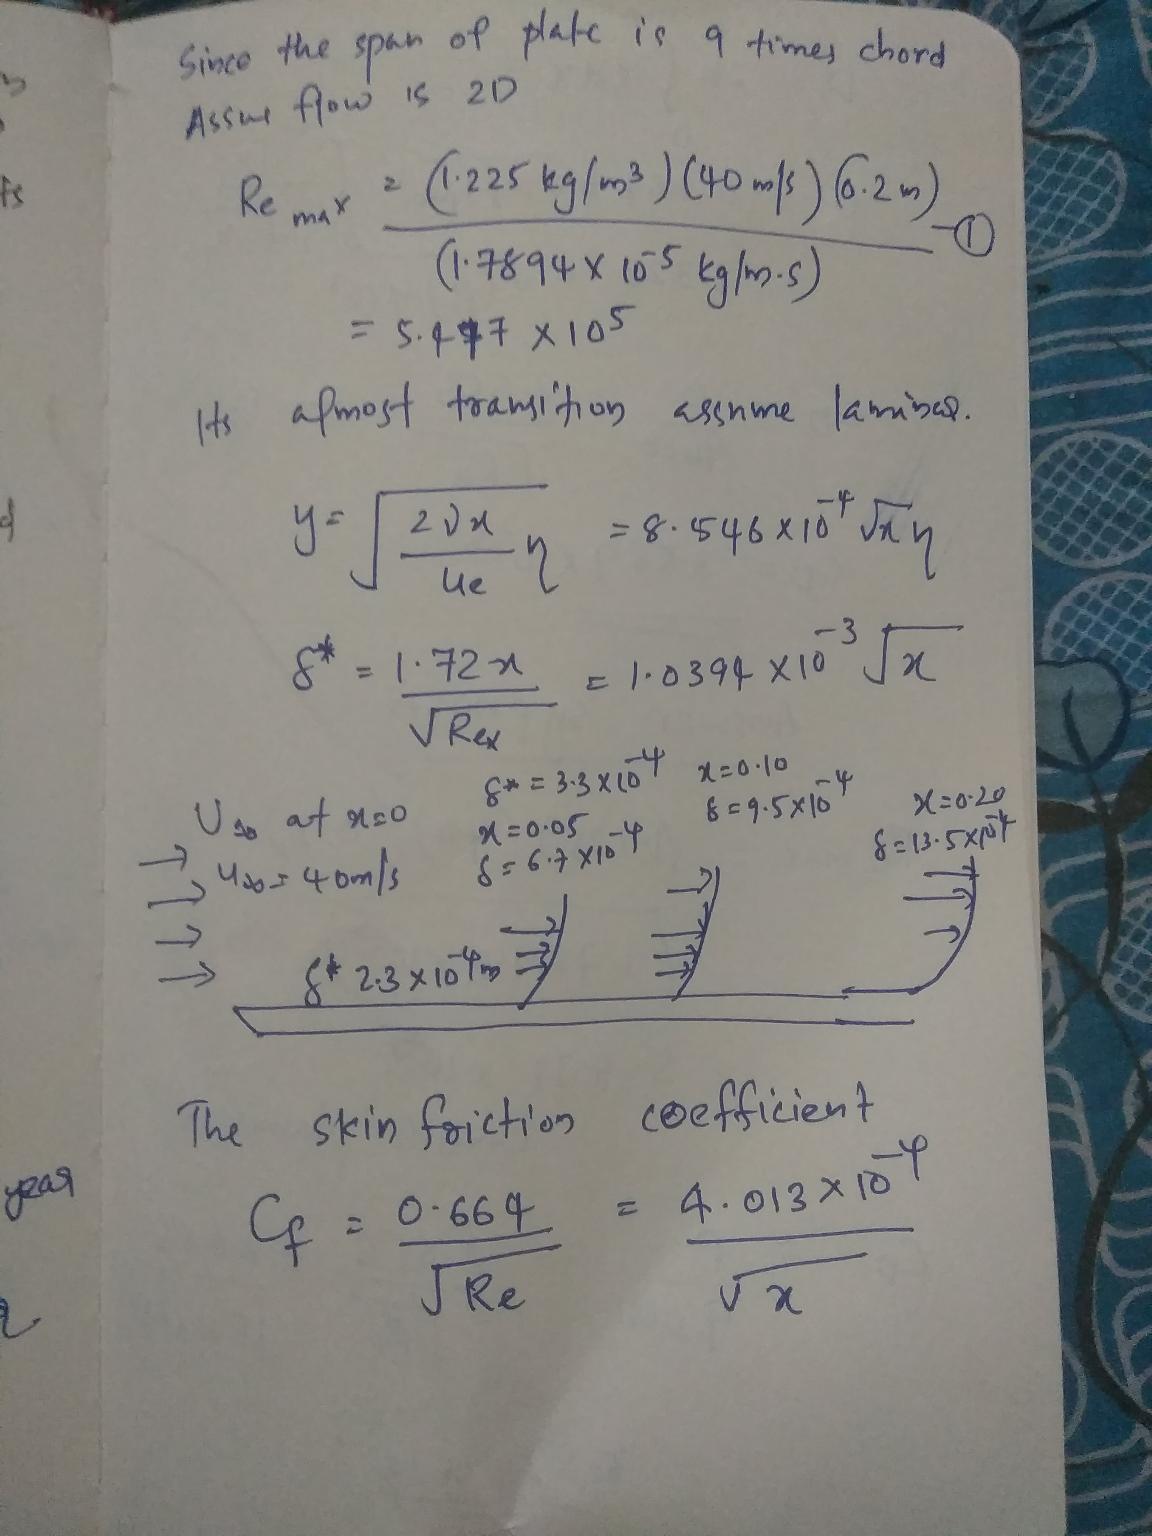 Since the span of plate is 9 times chord
Assume flow is 2D
Re max = (1.225 kg/m³) (40 m/s) (0.2 m) / (1.7894 x 10^-5 kg/m·s) - ①
= 5.477 x 10^5
Its almost transition assume laminar.
y = √(2νx / ue) η = 8.546 x 10^-4 √x η
δ* = 1.72 x / √Rex = 1.0394 x 10^-3 √x
U∞ at x=0
u∞ = 40 m/s
δ* = 3.3 x 10^-4
x = 0.05
δ = 6.7 x 10^-4
x = 0.10
δ = 9.5 x 10^-4
x = 0.20
δ = 13.5 x 10^-4
δ* 2.3 x 10^-4 m
The skin friction coefficient
Cf = 0.664 / √Re = 4.013 x 10^-4 / √x
year